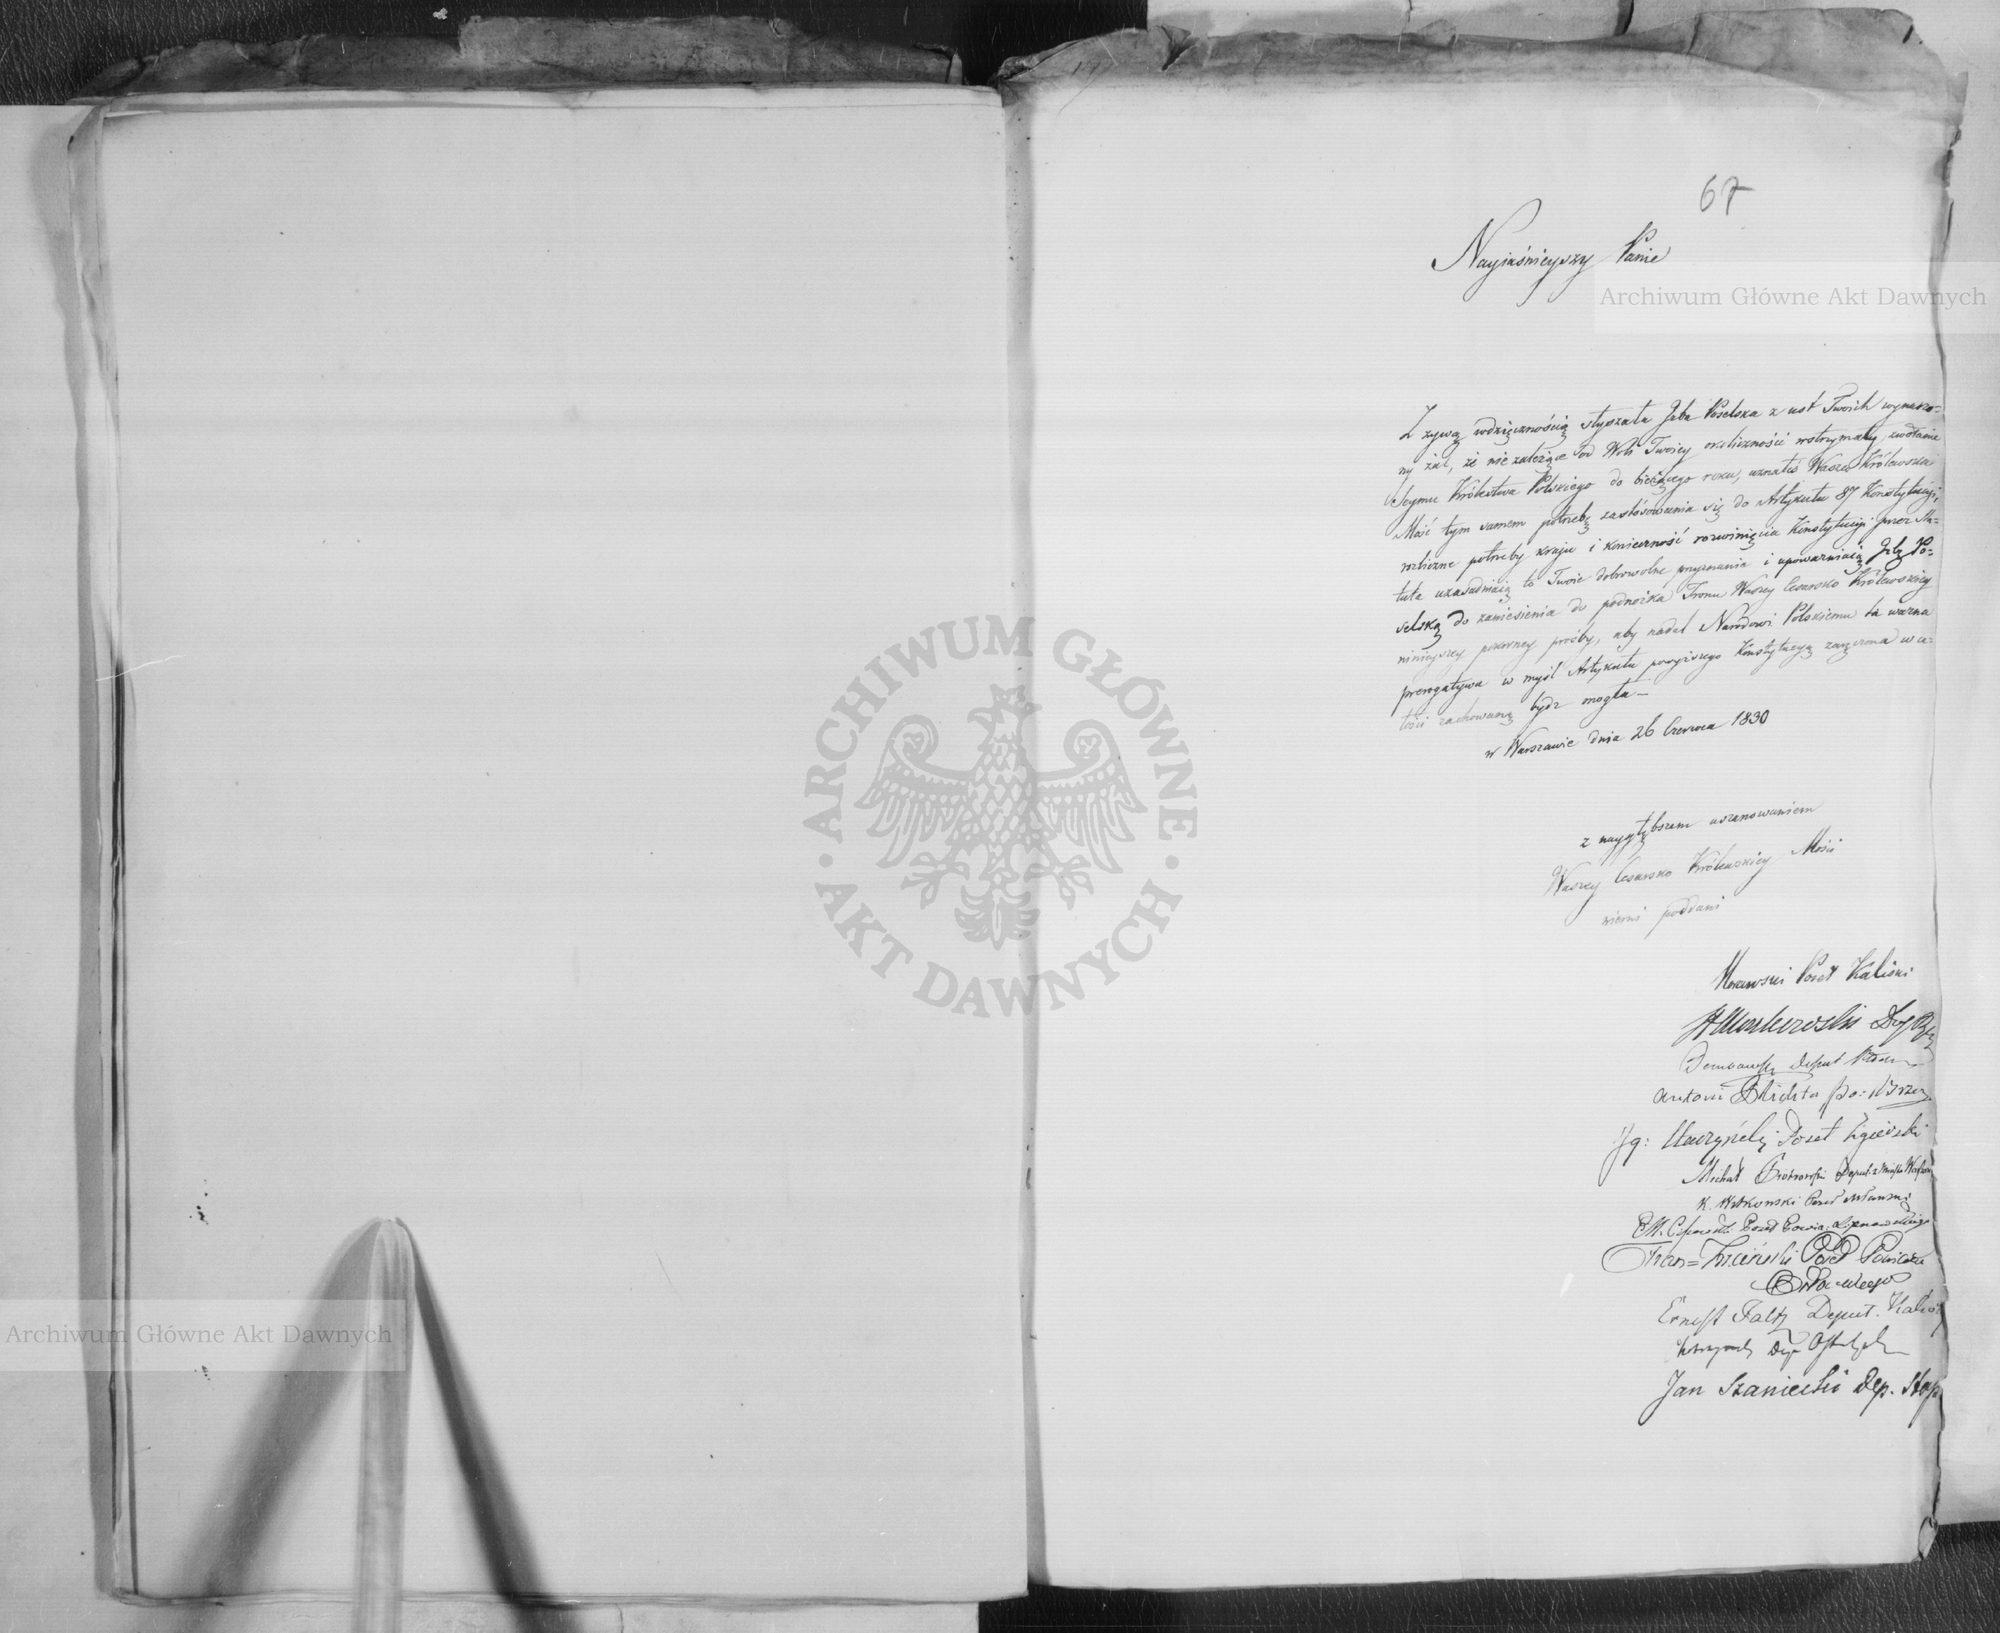 67
Nayjaśnieyszy Panie
Z żywą wdzięcznością słyszała Izba Poselska z ust Twoich wynurzo-
ny żal, że niezależące od Woli Twoiey okoliczności wstrzymały zwołanie
Seymu Królestwa Polskiego do bieżącego roku, uznałeś Wasza Królewska
Mość tym samem potrzebę zastosowania się do Artykułu 87 Konstytucyi,
rozliczne potrzeby kraju i konieczność rozwinięcia Konstytucyi przez Sta-
tuta uzasadniaią to Twoie dobrowolne przyznanie i upoważniaią Izbę Po-
selską do zaniesienia do podnóżka Tronu Waszey Cesarsko Królewskiey
ninieyszey pokorney prośby, aby nadal Narodowi Polskiemu ta ważna
prerogatywa w myśl Artykułu powyższego Konstytucyą zaręczona w ca-
łości zachowaną bydź mogła—
w Warszawie dnia 26 Czerwca 1830
z naygłębszem uszanowaniem
Waszey Cesarsko Królewskiey Mości
wierni poddani
Morawski Poseł Kaliski
Deput
Antoni
Poseł Zgierski
Michał Piotrowski Deput. z Miasta
K. Witkowski Poseł Mławski
Poseł Powia. Lipnowskiego
Fran= Trzciński Poseł Powiatu
Orłowskiego
Ernest Faltz Deput. Kalis
Dep
Jan Szaniecki Dep. Stop
Archiwum Główne Akt Dawnych
Archiwum Główne Akt Dawnych
ARCHIWUM GŁÓWNE · AKT DAWNYCH ·